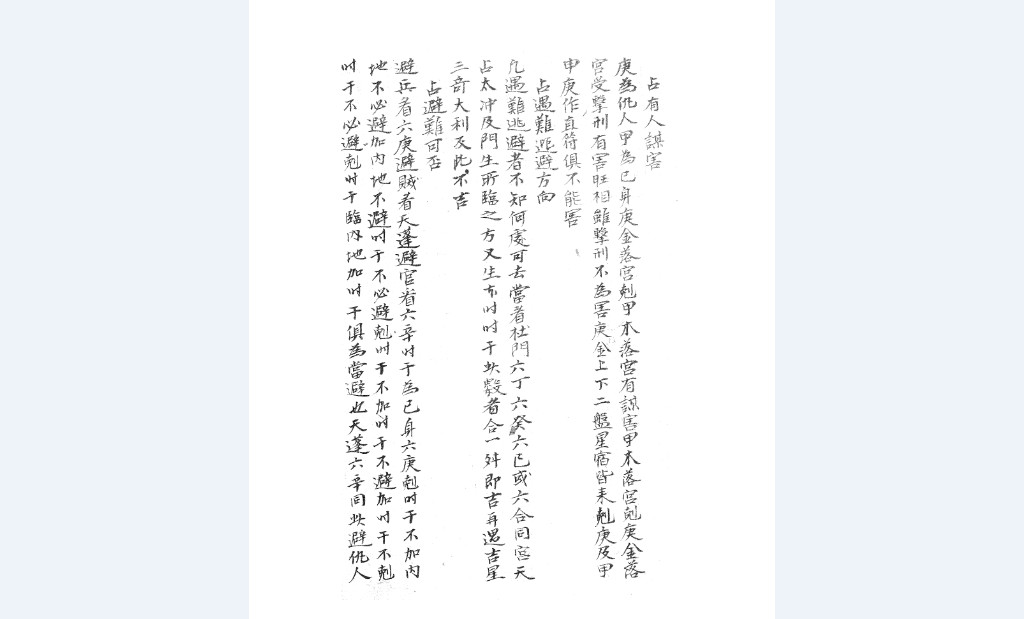 占有人謀害
庚為仇人甲為己身庚金落宮剋甲木落宮有謀害甲木落宮剋庚金落
宮受擊刑有害旺相雖擊刑不為害庚金上下二盤星宿皆來剋庚及甲
申庚作直符俱不能害
占遇難逃避方向
凡遇難逃避者不知何處可去當看杜門六丁六癸六己或六合同宮天
占太冲及門生所臨之方又生本时时干此數者合一舛即吉再遇吉星
三奇大利反此不吉
占避難可否
避兵看六庚避賊看天蓬避官看六辛时干為己身六庚剋时干不加内
地不必避加内地不避时干不必避剋时干不加时干不避加时干不剋
时干不必避剋时干臨内地加时干俱為當避也天蓬六辛同此避仇人